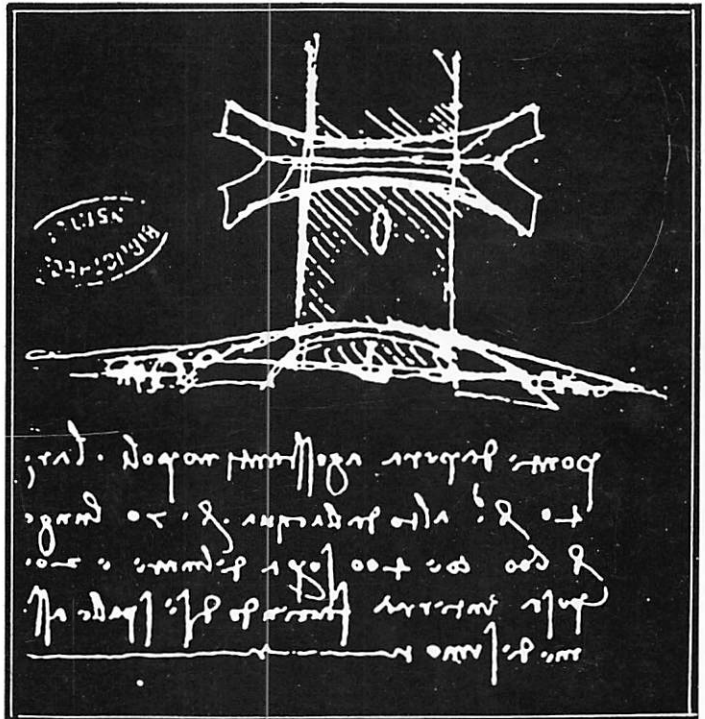 ponte da pera a gosstantinopoli . largo
40 br alto dallacqua br 70 lungo
br 600 cioe 400 sopra del mare e 200
posa in terra faciendo di se spalle a sse
medesimo